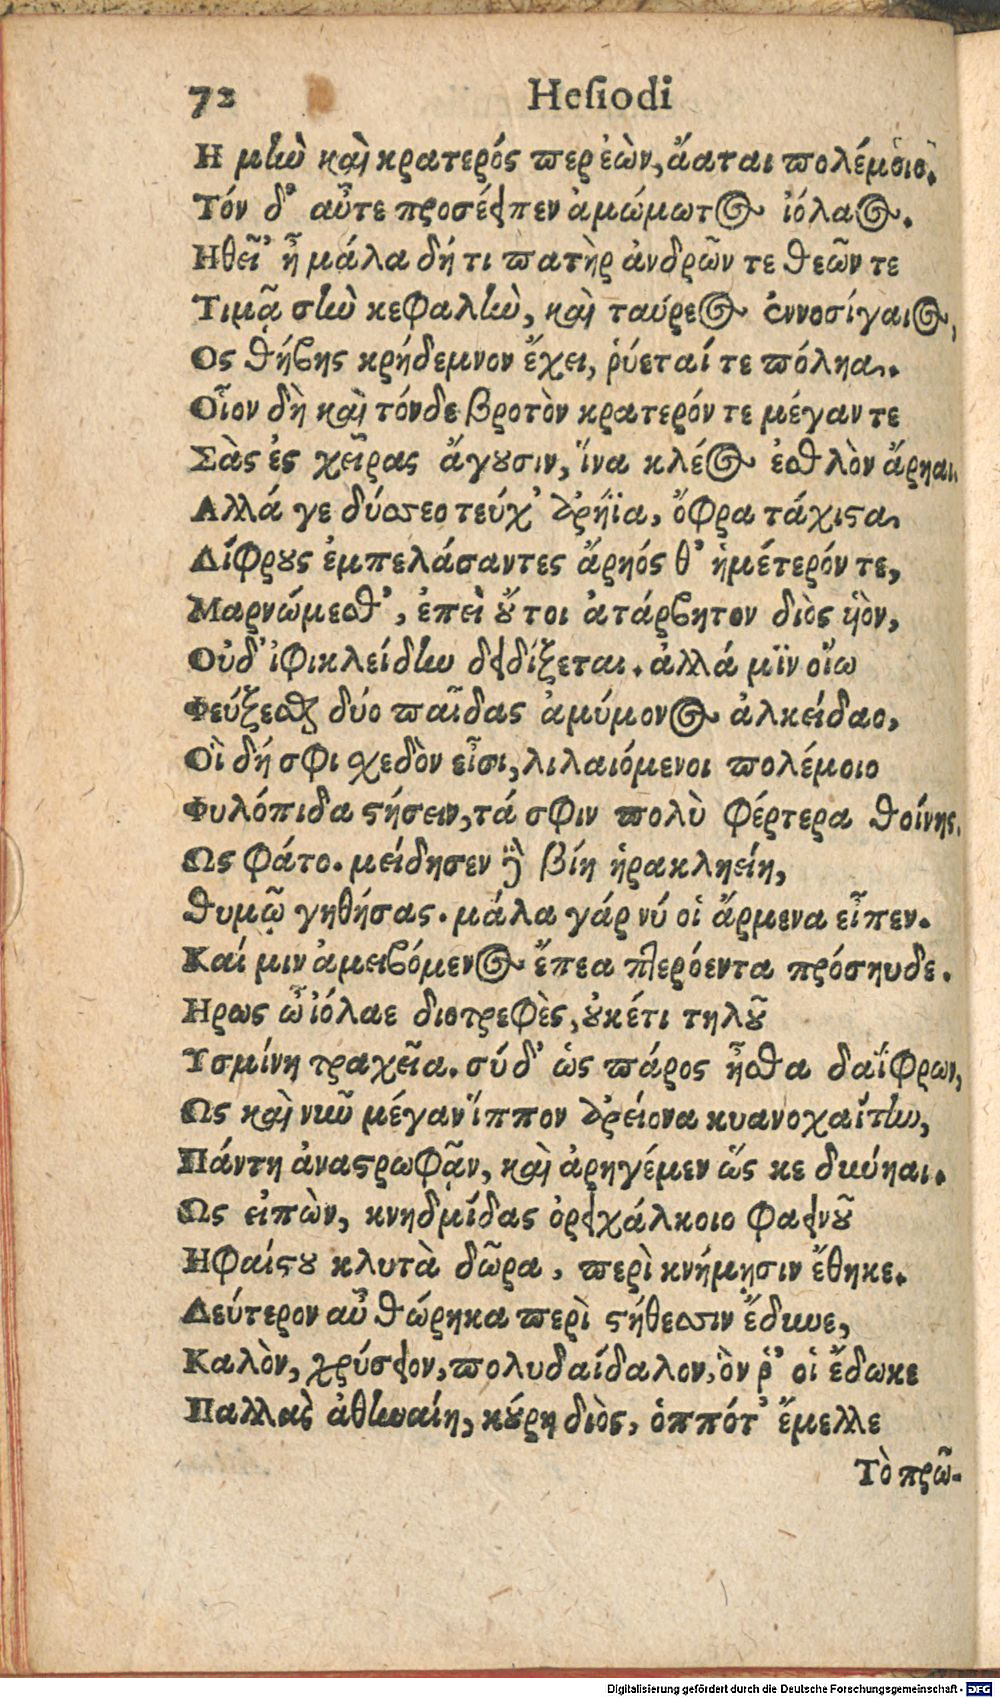 72 Hesiodi
Η μὴν καὶ κρατερός περ ἐὼν, ἄαται πολέμοιο.
Τόν δ' αὖτε προσέειπεν ἀμώμητος ἰόλαος.
Ηθεῖ' ἦ μάλα δή τι πατὴρ ἀνδρῶν τε θεῶν τε
Τιμᾷ σὴν κεφαλὴν, καὶ ταύρεος ἐννοσίγαιος,
Ος θήβης κρήδεμνον ἔχει, ῥύεταί τε πόληα.
Οἷον δὴ καὶ τόνδε βροτὸν κρατερόν τε μέγαν τε
Σὰς ἐς χεῖρας ἄγουσιν, ἵνα κλέος ἐσθλὸν ἄρηαι.
Αλλά γε δύσσεο τεύχε' ἀρήϊα, ὄφρα τάχιστα
Δίφρους ἐμπελάσαντες ἄρηός θ' ἡμέτερόν τε,
Μαρνώμεσθ', ἐπεὶ οὔτοι ἀτάρβητον διὸς υἱὸν,
Οὐδ' ἰφικλείδην δειδίξεται. ἀλλά μϊν οἴω
Φεύξεσθαι δύο παῖδας ἀμύμονος ἀλκείδαο,
Οἳ δή σφι σχεδὸν εἶσι, λιλαιόμενοι πολέμοιο
Φυλόπιδα στήσειν, τά σφιν πολὺ φέρτερα θοίνης.
Ως φάτο. μείδησεν δὲ βίη ἡρακληείη,
Θυμῷ γηθήσας. μάλα γάρ νύ οἱ ἄρμενα εἶπεν.
Καί μιν ἀμειβόμενος ἔπεα πτερόεντα πρόσηυδε.
Ηρως ὦ ἰόλαε διοτρεφὲς, οὐκέτι τηλοῦ
Υσμίνη τραχεῖα. σύ δ' ὡς πάρος ἦσθα δαΐφρων,
Ως καὶ νῦν μέγαν ἵππον ἀρείονα κυανοχαίτην,
Πάντη ἀναστρωφᾷν, καὶ ἀρηγέμεν ὥς κε δύνηαι.
Ως εἰπὼν, κνημῖδας ὀρειχάλκοιο φαεινοῦ
Ηφαίστου κλυτὰ δῶρα, περὶ κνήμῃσιν ἔθηκε.
Δεύτερον αὖ θώρηκα περὶ στήθεσσιν ἔδυνε,
Καλὸν, χρύσειον, πολυδαίδαλον, ὃν ῥ' οἱ ἔδωκε
Παλλὰς ἀθηναίη, κούρη διὸς, ὁππότ' ἔμελλε
Τὸ πρῶ-
Digitalisierung gefördert durch die Deutsche Forschungsgemeinschaft - DFG